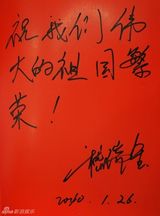 祝我们伟
大的祖国繁
荣！
2010.1.26.
新浪娱乐